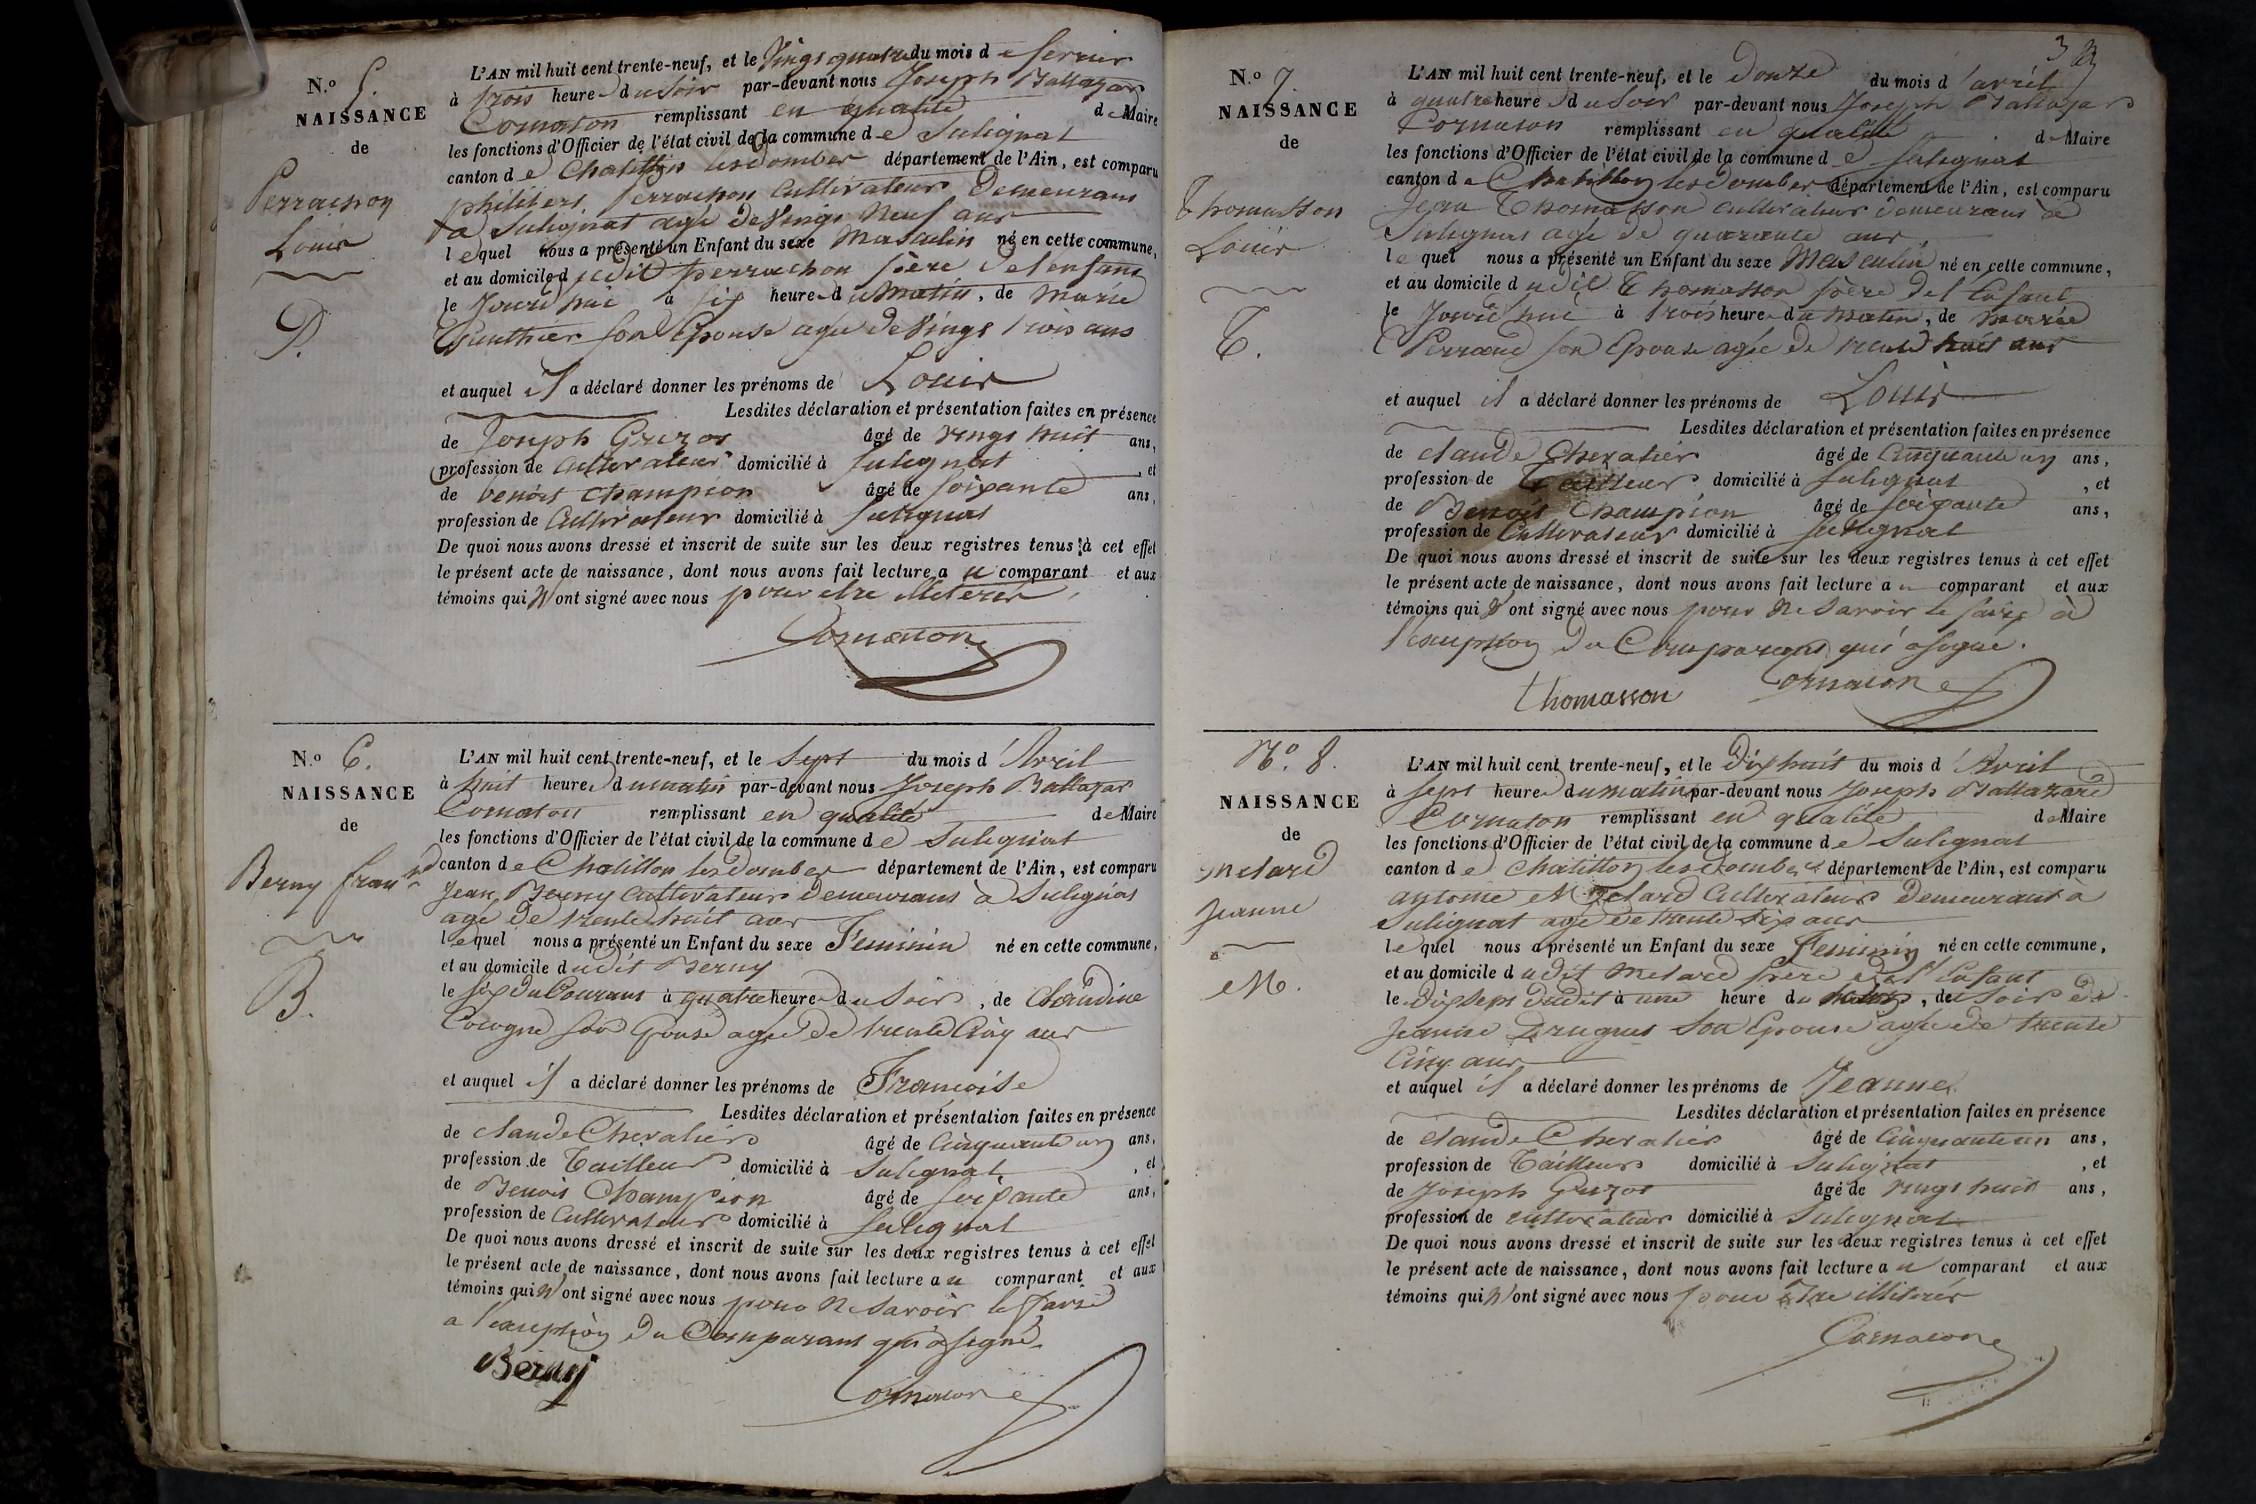 N.o 5.
NAISSANCE
de
Perrachon
Louis
P.
L'AN mil huit cent trente-neuf, et le Vingt quatre du mois de fevrier
à trois heures du Soir par-devant nous Joseph Baltazar
Cornaton remplissant en qualité de Maire
les fonctions d'Officier de l'état civil de la commune de Sulignat
canton de Chatillon les dombes département de l'Ain, est comparu
philibert Perrachon Cultivateur Demeurant
a Sulignat age de Vingt Neuf ans
lequel nous a présenté un Enfant du sexe Masculin né en cette commune,
et au domicile dudit perrachon père del enfant
le Jourd'hui à six heures du Matin, de Marie
Gauthier son Epouse agée de Vingt trois ans
et auquel il a déclaré donner les prénoms de Louis
Lesdites déclaration et présentation faites en présence
de Joseph Guzot âgé de vingt huit ans,
profession de Cultivateur domicilié à Sulignat, et
de benoit Champion âgé de soixante ans,
profession de Cultivateur domicilié à Sulignat
De quoi nous avons dressé et inscrit de suite sur les deux registres tenus à cet effet
le présent acte de naissance, dont nous avons fait lecture au comparant et aux
témoins qui N'ont signé avec nous pour etre illiterés
Cornaton
N.o 6.
NAISSANCE
de
Berny
B.
L'AN mil huit cent trente-neuf, et le Sept du mois d'Avril
à huit heures du matin par-devant nous Joseph Baltazar
Cornaton remplissant en qualité de Maire
les fonctions d'Officier de l'état civil de la commune de Sulignat
canton de Chatillon les dombes département de l'Ain, est comparu
Jean Berny Cultivateur Demeurant à Sulignat
agé de trente huit ans
lequel nous a présenté un Enfant du sexe Feminin né en cette commune,
et au domicile dudit Berny
le six du Courant à quatre heures du Soir, de Claudine
Cologne son Epouse agée de trente Cinq ans
et auquel il a déclaré donner les prénoms de Francoise
Lesdites déclaration et présentation faites en présence
de Claude Chevalier âgé de Cinquante un ans,
profession de Tailleur domicilié à Sulignat, et
de Benoit Champion âgé de soixante ans,
profession de Cultivateur domicilié à Sulignat
De quoi nous avons dressé et inscrit de suite sur les deux registres tenus à cet effet
le présent acte de naissance, dont nous avons fait lecture au comparant et aux
témoins qui N'ont signé avec nous pour ne Savoir le faire
a l'exception du Comparant qui a signé
Berny Cornaton
3
N.o 7.
NAISSANCE
de
Thomasson
Louis
T.
L'AN mil huit cent trente-neuf, et le Douze du mois d'avril
à quatre heures du Soir par-devant nous Joseph Baltazar
Cornaton remplissant en qualité de Maire
les fonctions d'Officier de l'état civil de la commune de Sulignat
canton de Chatillon les dombes département de l'Ain, est comparu
Jean Thomasson cultivateur demeurant à
Sulignat age de quarante ans
lequel nous a présenté un Enfant du sexe Masculin né en cette commune,
et au domicile dudit Thomasson père del Enfant
le Jourd'hui à trois heures du Matin, de Marie
son Epouse agée de trente huit ans
et auquel il a déclaré donner les prénoms de Louis
Lesdites déclaration et présentation faites en présence
de Claude Chevalier âgé de Cinquante un ans,
profession de Tailleur domicilié à Sulignat, et
de Benoit Champion âgé de soixante ans,
profession de Cultivateur domicilié à Sulignat
De quoi nous avons dressé et inscrit de suite sur les deux registres tenus à cet effet
le présent acte de naissance, dont nous avons fait lecture au comparant et aux
témoins qui N'ont signé avec nous pour Ne Savoir le faire à
l'exception du Comparant qui a signé.
Thomasson Cornaton
N.o 8.
NAISSANCE
de
Metard
Jeanne
M.
L'AN mil huit cent trente-neuf, et le Dixhuit du mois d'Avril
à Sept heures du matin par-devant nous Joseph Baltazard
Cornaton remplissant en qualité de Maire
les fonctions d'Officier de l'état civil de la commune de Sulignat
canton de Chatillon les dombes département de l'Ain, est comparu
antoine Metard Cultivateur Demeurant à
Sulignat agé de trente six ans
lequel nous a présenté un Enfant du sexe Feminin né en cette commune,
et au domicile dudit Metard père del' Enfant
le Dixsept dudit à une heure du, du Soir de
Jeanne son Epouse agée de trente
Cinq ans
et auquel il a déclaré donner les prénoms de Jeanne
Lesdites déclaration et présentation faites en présence
de Claude Chevalier âgé de Cinquante un ans,
profession de Tailleur domicilié à Sulignat, et
de Joseph Guzot âgé de vingt huit ans,
profession de cultivateur domicilié à Sulignat
De quoi nous avons dressé et inscrit de suite sur les deux registres tenus à cet effet
le présent acte de naissance, dont nous avons fait lecture au comparant et aux
témoins qui N'ont signé avec nous pour Etre illiterés
Cornaton